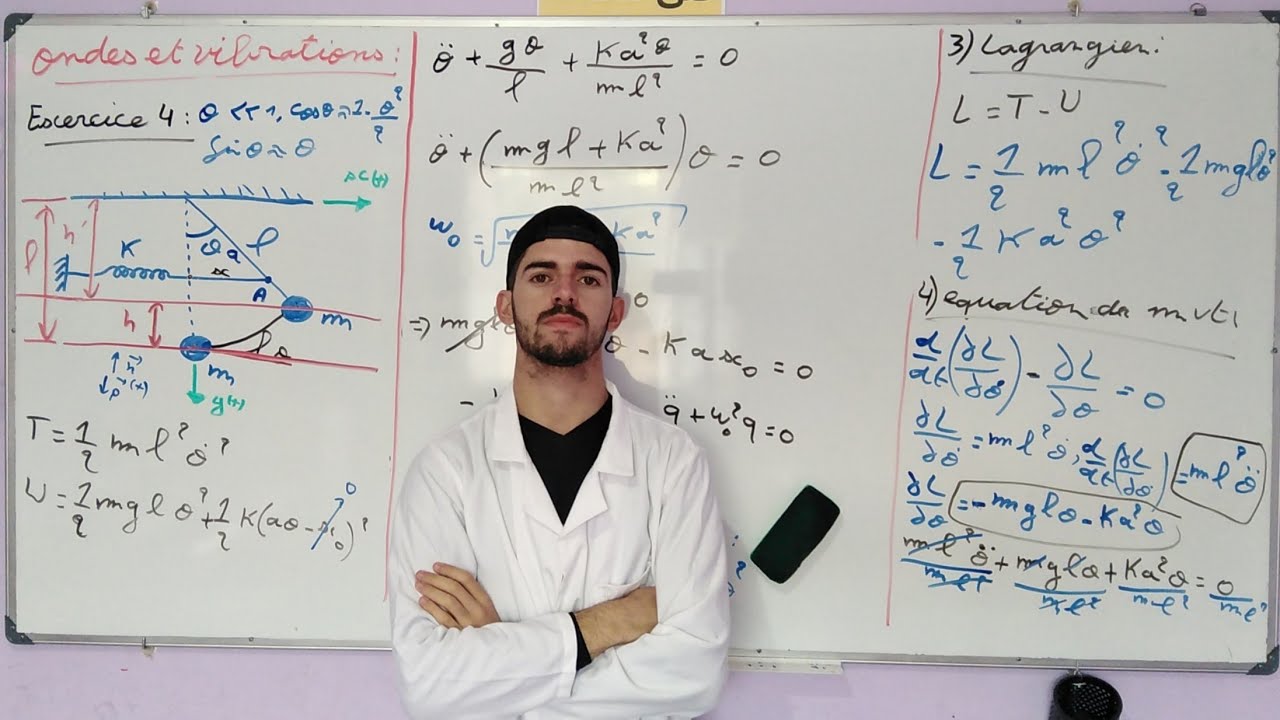 ondes et vibrations :
Exercice 4 : θ << 1, cosθ ≈ 1 - θ²/2
sin θ ≈ θ
x(+)
l
h'
K
θ
a
l
x
A
m
h
θ
m
g(+)
T = 1/2 m l² θ̇²
U = 1/2 m g l θ² + 1/2 K(aθ - x₀)²
0
θ̈ + gθ/l + Ka²θ/ml² = 0
θ̈ + (mgl + Ka²/ml²)θ = 0
ω₀ = √
Ka²
0
=> mglθ
θ - Kax₀ = 0
q̈ + ω₀²q = 0
3) Lagrangien :
L = T - U
L = 1/2 m l² θ̇² - 1/2 mglθ²
- 1/2 K a² θ²
4) equation de mvt
d/dt(∂L/∂θ̇) - ∂L/∂θ = 0
∂L/∂θ̇ = ml²θ̇, d/dt(∂L/∂θ̇) = ml²θ̈
∂L/∂θ = -mglθ - Ka²θ
ml²θ̈/ml² + mglθ/ml² + Ka²θ/ml² = 0/ml²